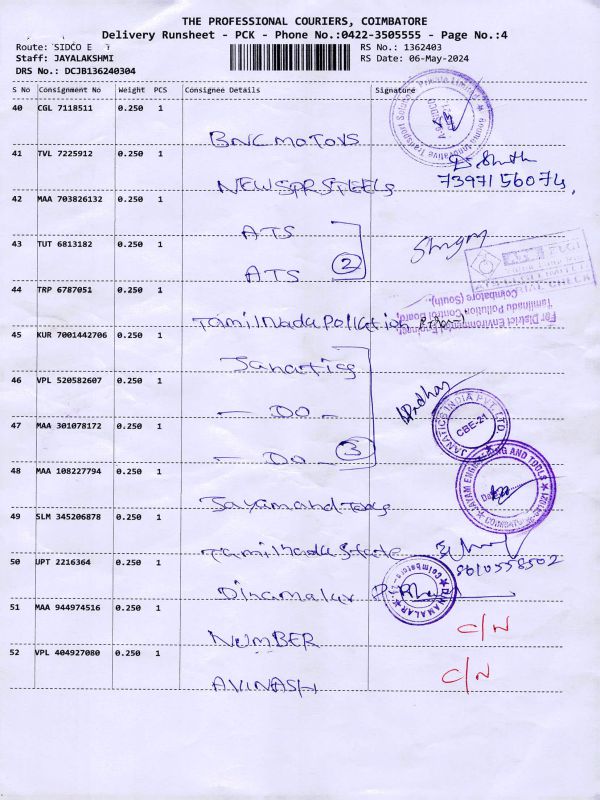 THE PROFESSIONAL COURIERS, COIMBATORE
Delivery Runsheet - PCK - Phone No.:0422-3505555 - Page No.:4
Route: SIDCO E
RS No.: 1362403
Staff: JAYALAKSHMI
RS Date: 06-May-2024
DRS No.: DCJB136240304
S No Consignment No Weight PCS Consignee Details Signature
40 CGL 7118511 0.250 1
BNC MOTOVS
41 TVL 7225912 0.250 1
NEWSPR STEELS
7397156074
42 MAA 703826132 0.250 1
ATS
43 TUT 6813182 0.250 1
ATS
2
44 TRP 6787051 0.250 1
For District Environmental Engineer
Tamilnadu Pollution Control Board,
Coimbatore (South).
Tamilnadu Pollution
45 KUR 7001442706 0.250 1
Janatics
46 VPL 520582607 0.250 1
- DO -
JANATICS INDIA PVT. LTD.
CBE-21
47 MAA 301078172 0.250 1
- DO -
3
48 MAA 108227794 0.250 1
JAYAM ENGINEERING AND TOOLS
Jayam and Tools
49 SLM 345206878 0.250 1
Tamilnadu State
8610558502
50 UPT 2216364 0.250 1
Dinamalar
DINAMALAR
Coimbatore
51 MAA 944974516 0.250 1
C/N
NUMBER
52 VPL 404927080 0.250 1
C/N
AVINASHI